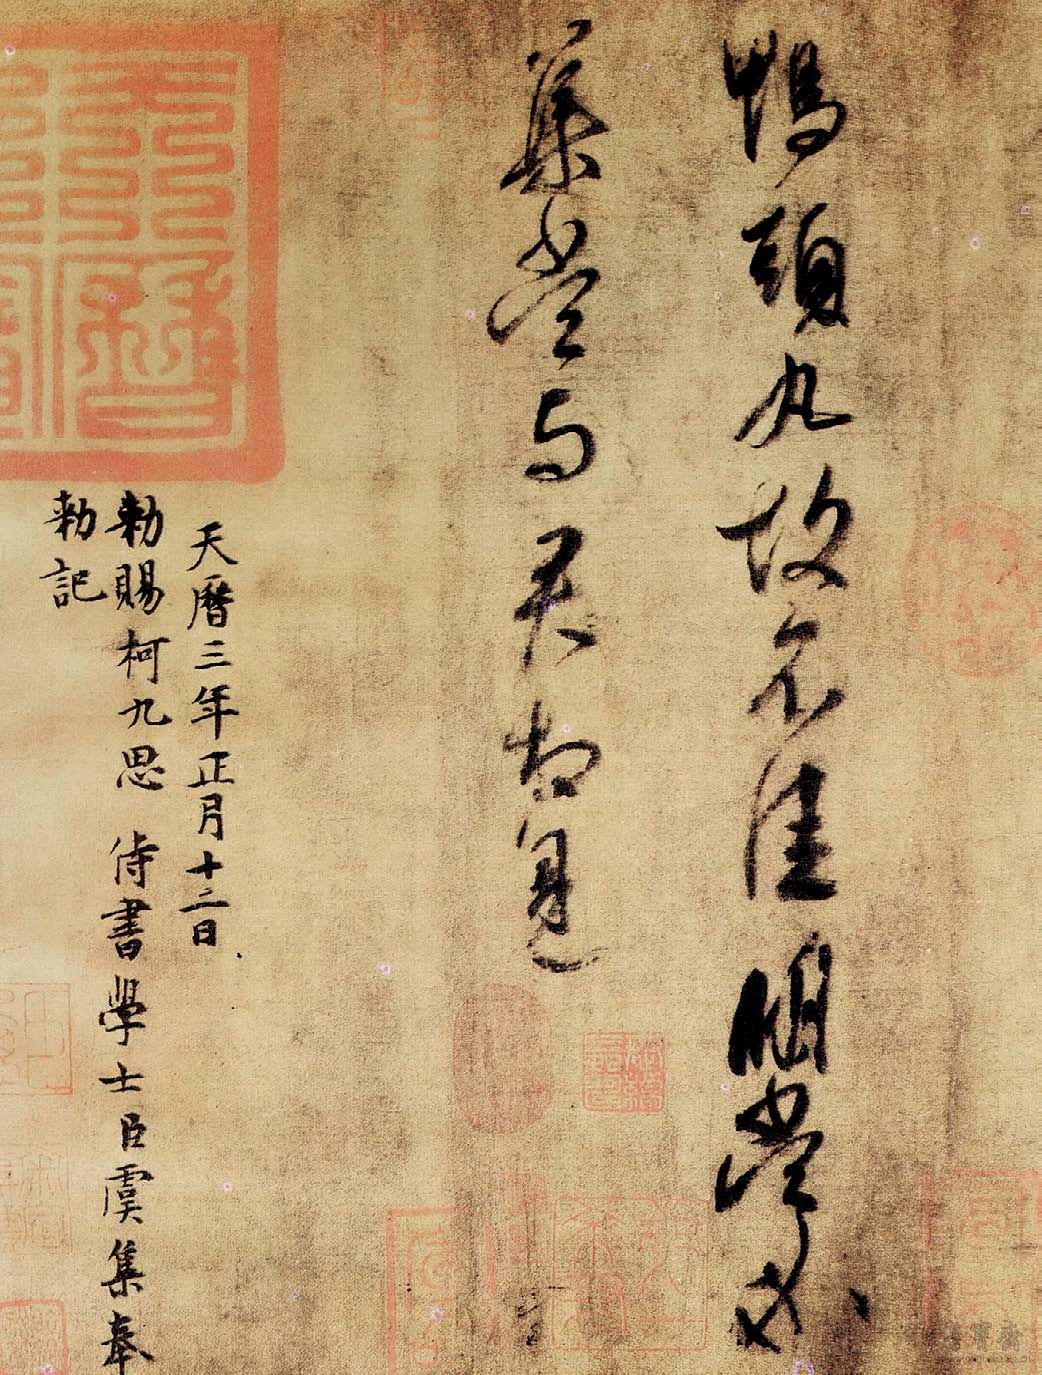 鴨頭丸故不佳明當必
集當與君相見
天曆三年正月十二日
勅賜柯九思侍書學士臣虞集奉
勅記
天曆